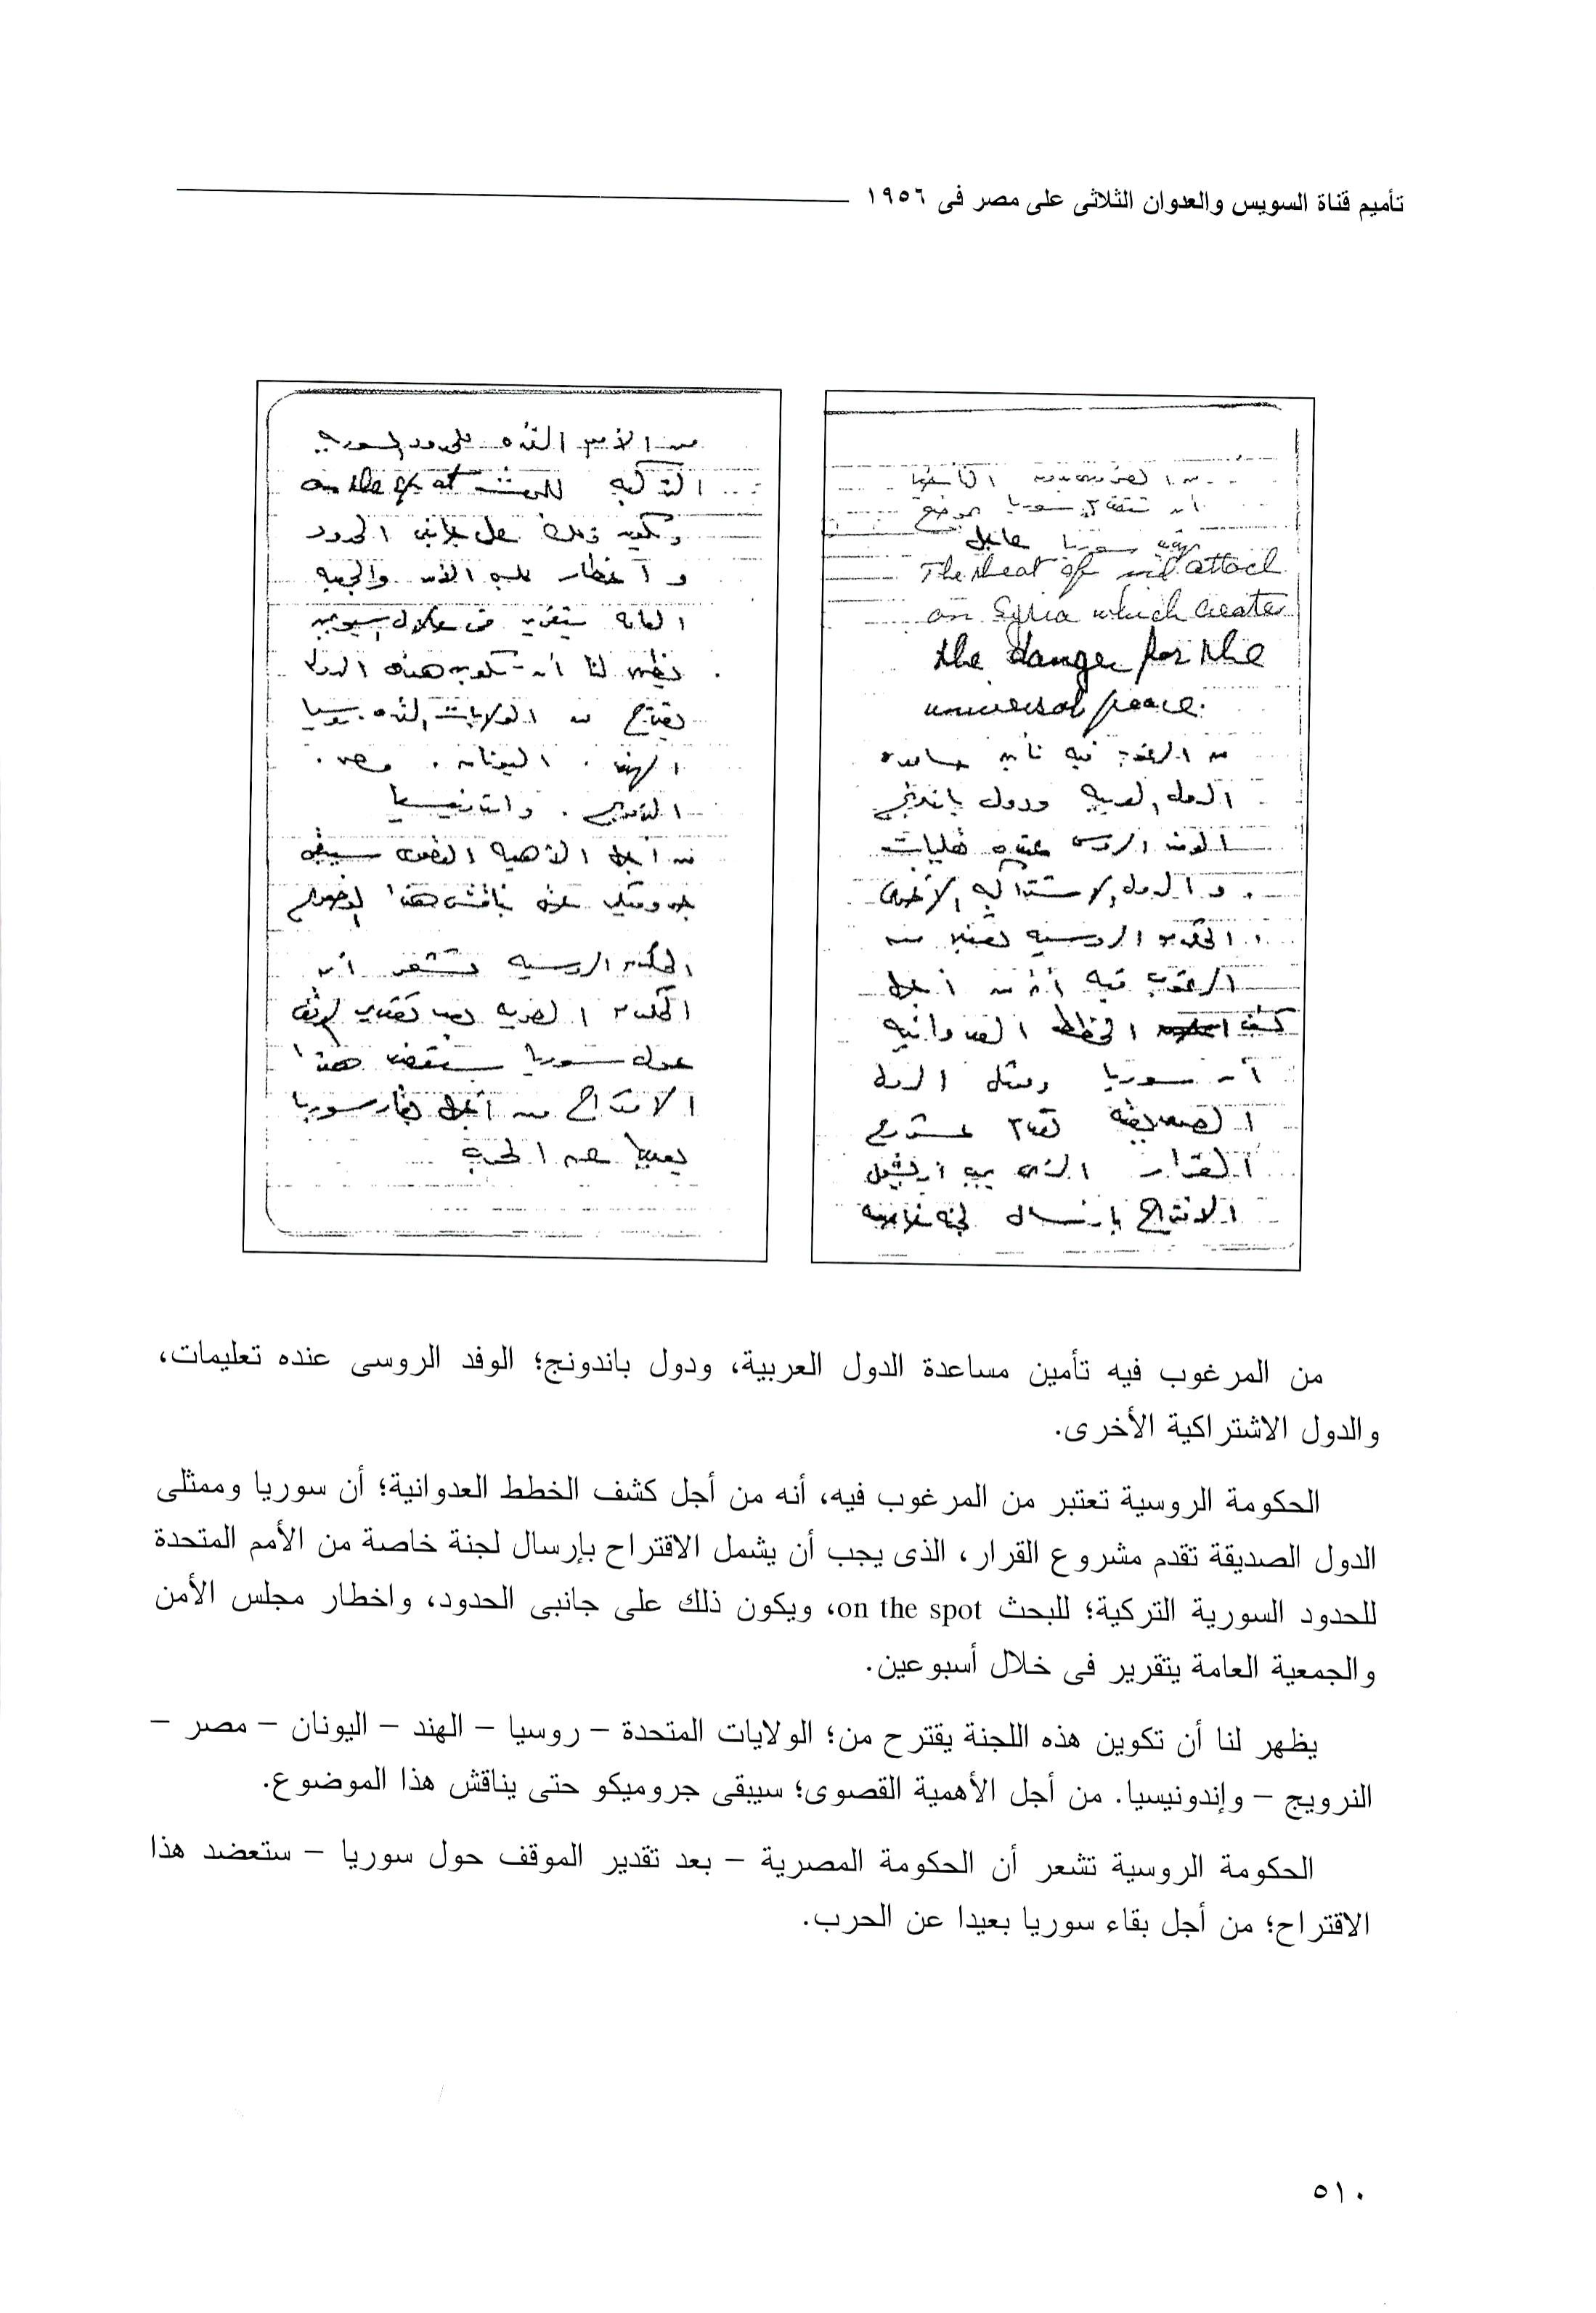 تأميم قناة السويس والعدوان الثلاثى على مصر فى ١٩٥٦
من الضرورى
أن تتقدم سوريا بموضوع
سوريا عاجل
The threat of mil attack
on Syria which creates
the danger for the
universal peace.
من المرغوب فيه تأمين مساعده
الدول العربيه ودول باندونج
الوفد الروسى عنده تعليمات
و الدول الاشتراكيه الأخرى
الحكومه الروسيه تعتبر من
المرغوب فيه أنه من أجل
كشف الخطط العدوانيه
أن سوريا وممثلى الدول
الصديقه تقدم مشروع
القرار الذى يجب أن يشمل
الاقتراح بارسال لجنه خاصه
من الأمم المتحده للحدود السوريه
التركيه للبحث on the spot
ويكون ذلك على جانبى الحدود
و اخطار مجلس الأمن والجمعيه
العامه بتقرير فى خلال اسبوعين
يظهر لنا أن تكوين هذه
يقترح من الولايات المتحده . روسيا
الهند . اليونان . مصر .
النرويج . واندونيسيا
من أجل الأهميه القصوى سيبقى
جروميكو حتى يناقش هذا الموضوع
الحكومه الروسيه تشعر أن
الحكومه المصريه بعد تقدير الموقف
حول سوريا ستعضد هذا
الاقتراح من أجل بقاء سوريا
بعيدا عن الحرب
من المرغوب فيه تأمين مساعدة الدول العربية، ودول باندونج؛ الوفد الروسى عنده تعليمات،
والدول الاشتراكية الأخرى.
الحكومة الروسية تعتبر من المرغوب فيه، أنه من أجل كشف الخطط العدوانية؛ أن سوريا وممثلى
الدول الصديقة تقدم مشروع القرار، الذى يجب أن يشمل الاقتراح بإرسال لجنة خاصة من الأمم المتحدة
للحدود السورية التركية؛ للبحث on the spot، ويكون ذلك على جانبى الحدود، واخطار مجلس الأمن
والجمعية العامة يتقرير فى خلال أسبوعين.
يظهر لنا أن تكوين هذه اللجنة يقترح من؛ الولايات المتحدة – روسيا – الهند – اليونان – مصر –
النرويج – وإندونيسيا. من أجل الأهمية القصوى؛ سيبقى جروميكو حتى يناقش هذا الموضوع.
الحكومة الروسية تشعر أن الحكومة المصرية – بعد تقدير الموقف حول سوريا – ستعضد هذا
الاقتراح؛ من أجل بقاء سوريا بعيدا عن الحرب.
٥١٠